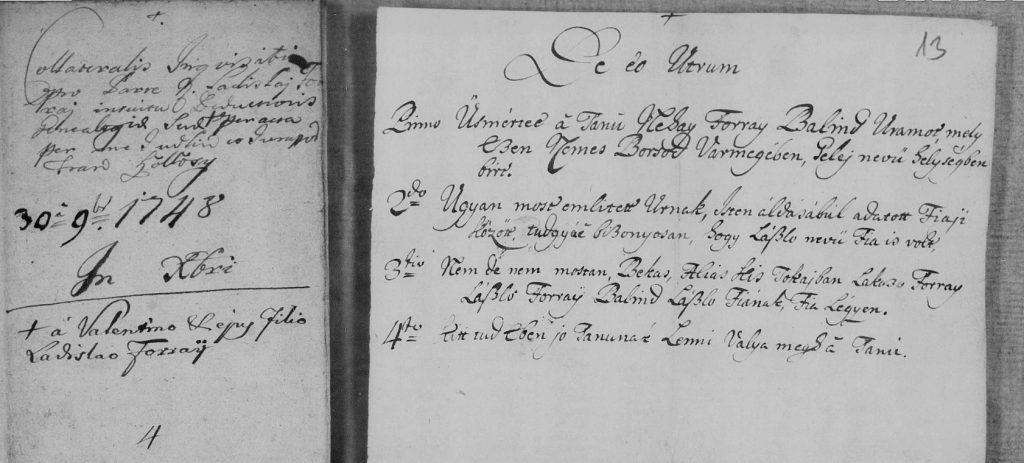 +
Collateralis Inqvisitio
pro Parte D. Ladislaj Fo
raj intuitu Deductionis
Genealogiæ Suæ peracta
per me Judlium
30a 9br 1748
In Xbri
+ á Valentino & ejus filio
Ladislao Forraÿ
4
+
13
De eo Utrum
Primo Üsmérteé à Tanú Néhay Forray Balind Uramot, mely
Eben Nemes Borsod Vármegyében, Gelej nevü hélységben
birt.
2do Ugyan most emlitett Urnak, Isten áldásábúl adatott Fiaji
között, tudgyáé bizonyosan, hogy László nevü Fia is volt,
3tio Nem dé nem mostan, Békas, Aliás Kis Tokajban Lakozo Forray
László Forraÿ Balind László Fiának, Fia Légyen.
4to Kitt tud Eben jo Tanunak Lenni Valya megh à Tanú.